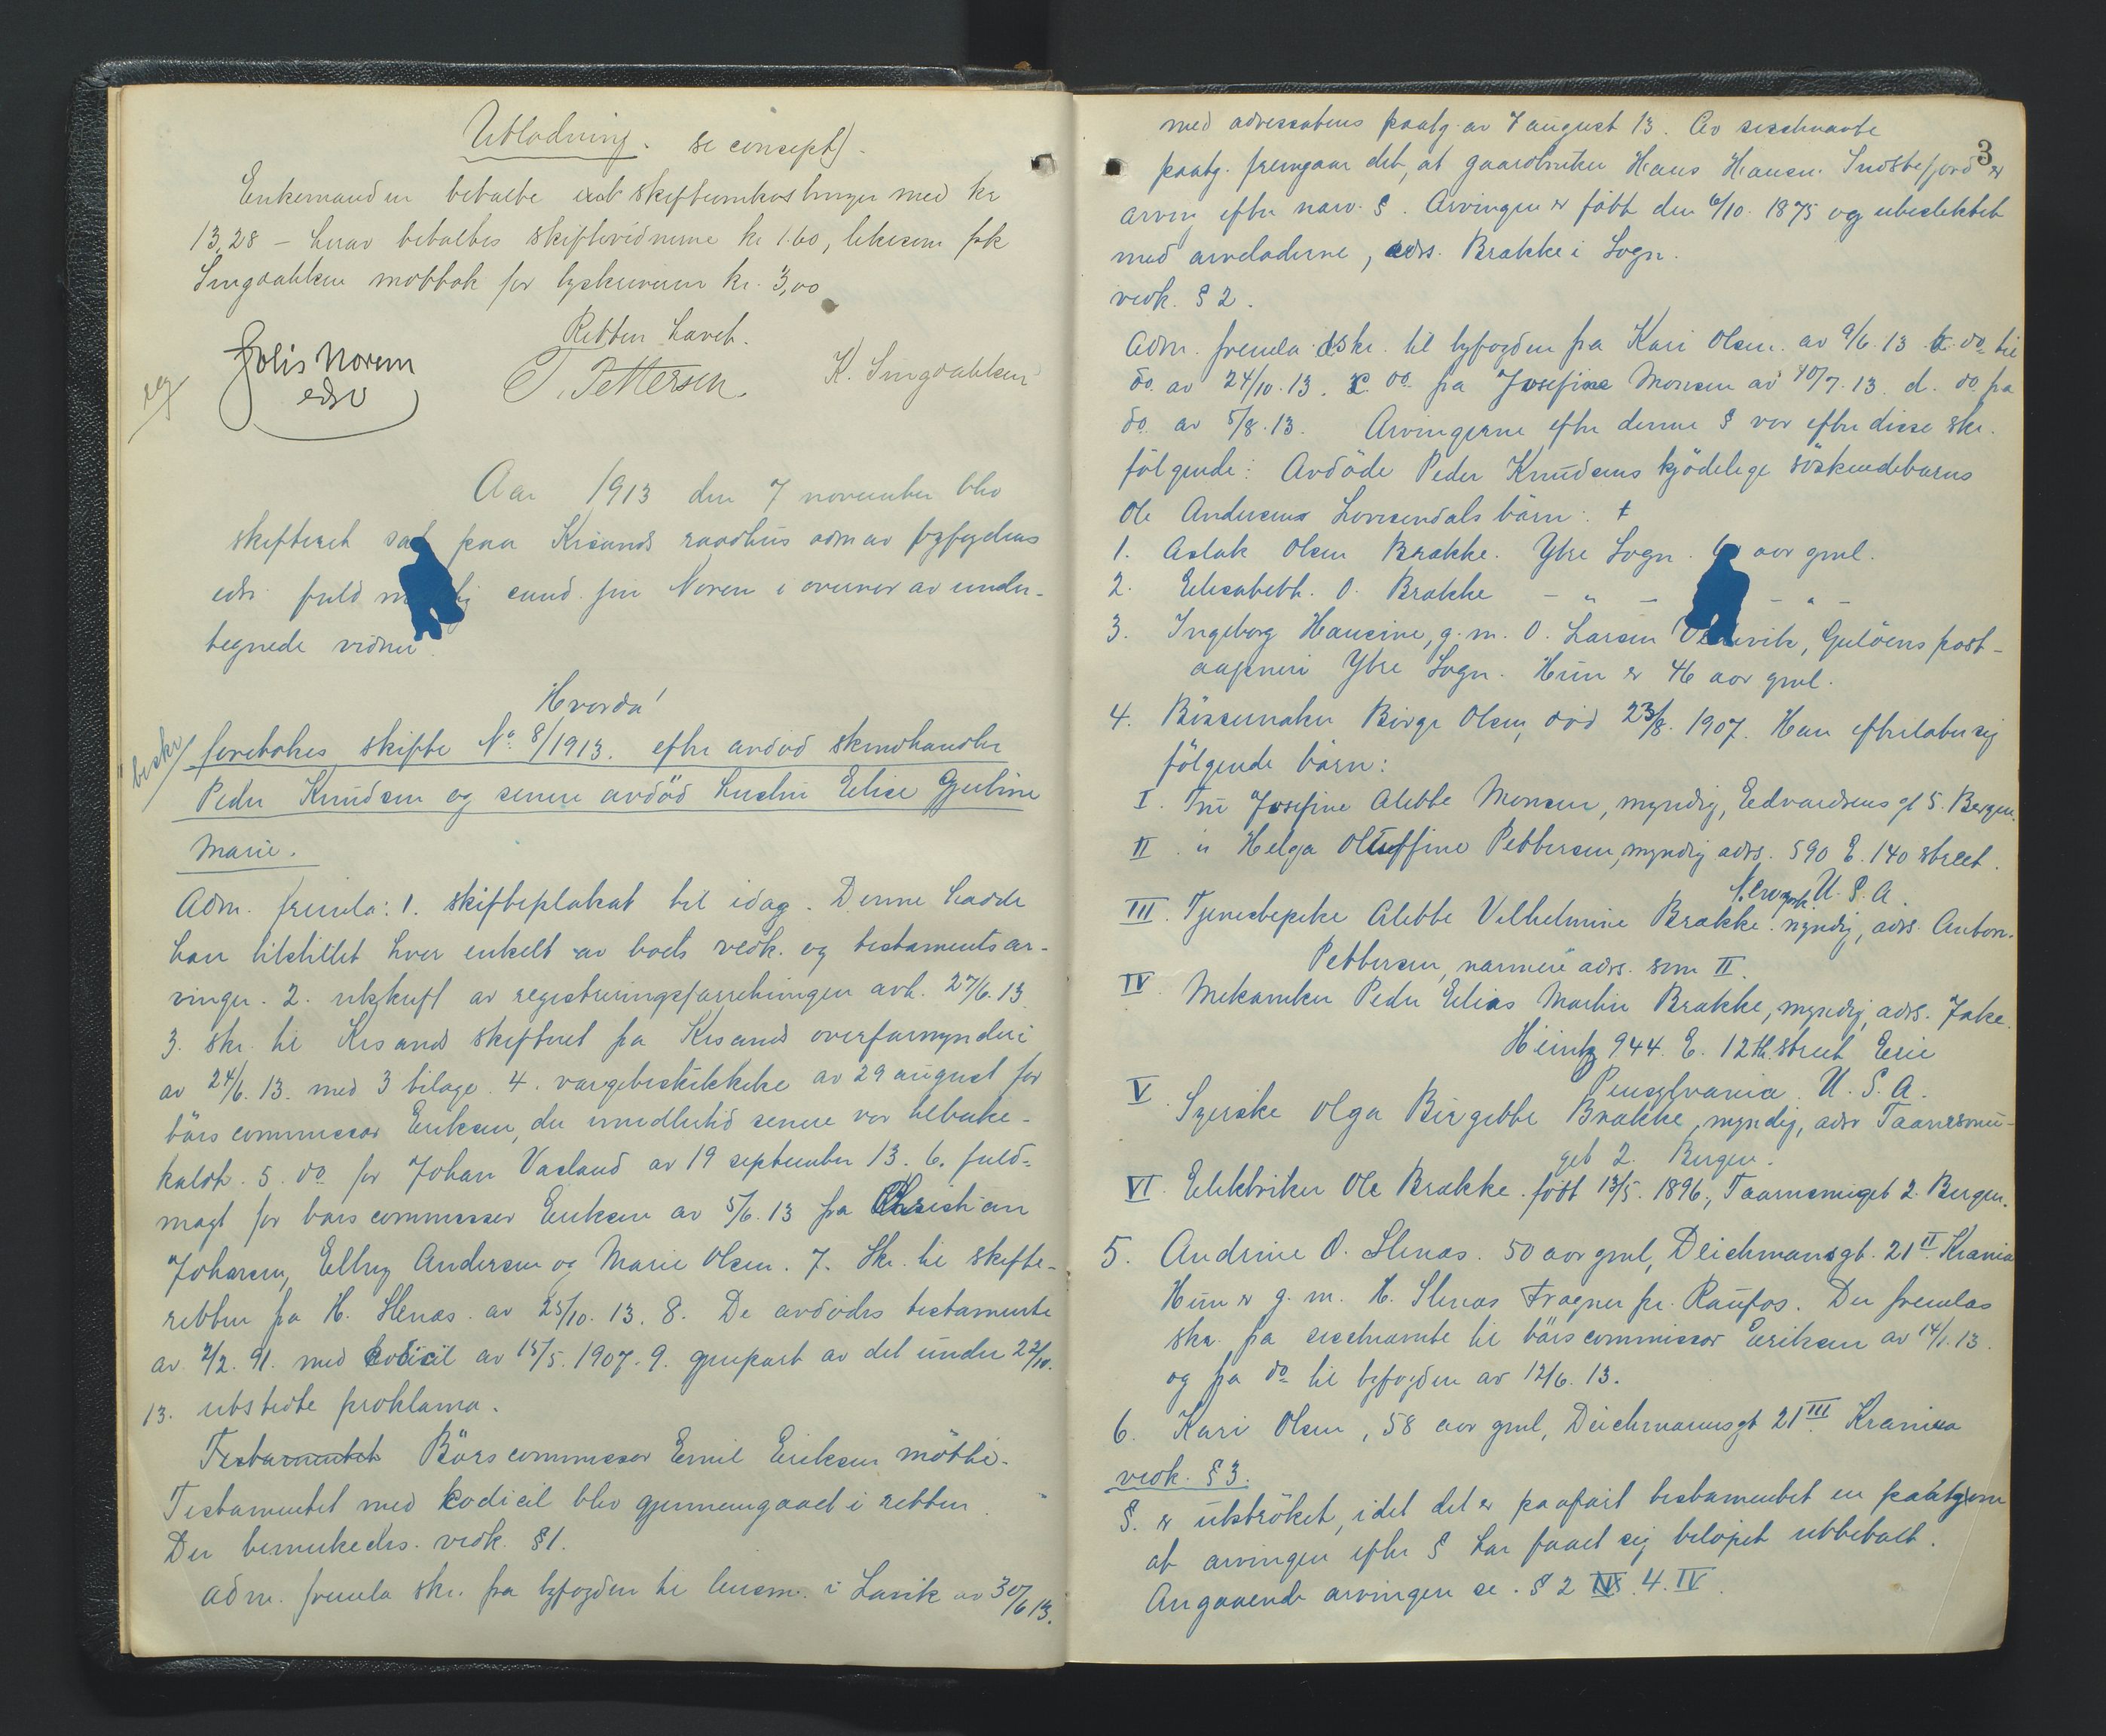 Utlodning. se concept).
Enkemanden betalte intet skifteomkostninger med kr
13,28 – herav betaltes skiftevidnerne kr 1.60, likesom frk
Singdahlsen mottok for tyskrivning kr. 3,00
Retten hævet.
Jolis Norem
edsv
T. Pettersen.
K. Singdahlsen
Aar 1913 den 7 november blev
skifteret sat paa Krsands raadhus adm av byfogdens
edsv. fuldmægtig cand. jur Norem i overvær av under-
tegnede vidner.
Hvorda!
beskr
foretokes skifte No 8/1913. efter avdød skindhandler
Peder Knudsen og senere avdød hustru Elise Gjurine
Marie.
Adm. fremla: 1. skifteplakat til idag. Denne hadde
han tilstillet hver enkelt av boets vedk. og testamentsar-
vinger. 2. utskrift av registreringsforretningen avh. 27/6.13
3. skr. til Krsands skifteret fra Krsands overformynderi
av 24/6.13. med 3 bilage. 4. vergebeskikkelse av 29 august for
børscommissær Eriksen, der imidlertid senere var tilbake-
kaldt. 5. do for Johan Vasland av 19 september 13. 6. fuld-
magt for børscommissær Eriksen av 5/6.13 fra Christian
Johnsen, Ellny Andersen og Marie Olsen. 7. Skr. til skifte-
retten fra H. Stenas av 25/10.13. 8. De avdødes testamente
av 2/2.91. med kodicil av 15/5.1907. 9. gjenpart av det under 22/10.
13. utstedte proklama.
Testamentet Børscommissær Emil Eriksen møtte.
Testamentet med kodicil blev gjennemgaaet i retten.
Der bemerkedes vedk. §1.
Adm. fremla skr. fra byfogden til lensm. i Lavik av 30/6 13.
3
med adressatens paategn. av 7 august 13. Av sisstnævnte
paatg. fremgaar det, at gaardbruker Hans Hansen Indstefjord er
arving efter nævn. §. Arvingen er født den 6/10. 1875 og ubeslektet
med arveladerne, adrs. Brække i Sogn.
vedk. § 2.
Adm. fremla a skr. til byfogden fra Kari Olsen av 9/6.13 b. do til
do. av 24/10.13. c. do fra Josefine Monsen av 10/7.13. d. do fra
do. av 5/8.13. Arvingerne efter denne § var efter disse skr.
følgende: Avdøde Peder Knudsens kjødelige søskendebarns
Ole Andersens Lovisendals børn: †
1. Aslak Olsen Brække. Ytre Sogn. aar gml.
2. Elisabeth. O. Brække – „ – – „ –
3. Ingeborg Hansine, g. m. O. Larsen, Guløens post-
aapneri Ytre Sogn. Hun er 46 aar gml.
4. Bøssemaker Børge Olsen, død 23/8. 1907. Han efterlater sig
følgende børn:
I. Fru Josefine Alette Monsen, myndig, Edvardsens gt 5. Bergen.
II. „ Helga Oluffine Pettersen, myndig adrs. 590 E. 140 street.
N.ewyork U.S.A.
III. Tjenestepike Alette Vilhelmine Brække. myndig, adrs. Anton.
Pettersen, nærmere adrs. som II.
IV. Mekaniker Peder Elias Martin Brække, myndig, adrs. Jake.
Heintz 944. E. 12th. street Erie
Pensylvania. U.S.A.
V. Syerske Olga Birgitte Brække, myndig, adrs Taarnsmu-
get 2. Bergen.
VI. Elektriker Ole Brække. født 13/5. 1896, Taarnsmuget 2. Bergen.
5. Andrine O. Stenas. 50 aar gml, Deichmansgt. 21 II Krania
Hun er g. m. H. Stenas Fragner pr. Raufos. Der fremlas
skr. fra sisstnævnte til børscommissær Eriksen av 14/1.13.
og fra do til byfogden av 12/6.13.
6. Kari Olsen, 58 aar gml, Deichmannsgt 21 III. Krania
vedk. § 3.
§. er utstrøket, idet det er paaført testamentet en paategn om
at arvingen efter § har faaet sig beløpet utbetalt.
Angaaende arvingen se. § 2 4. IV.